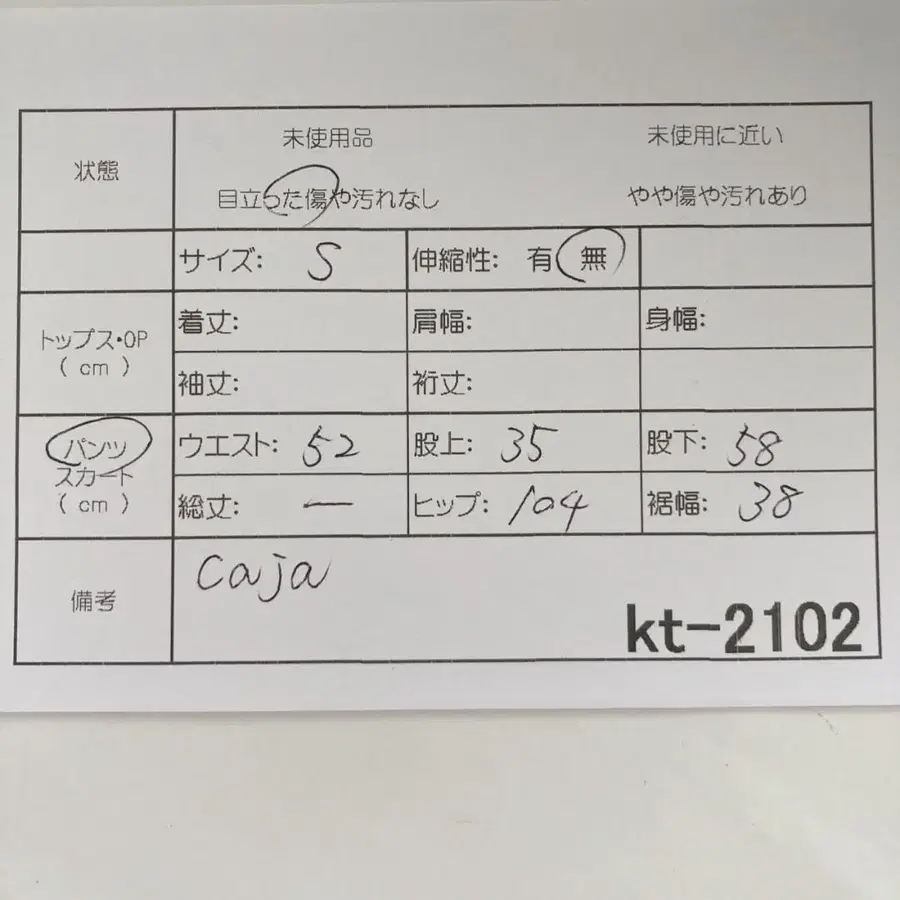 状態
未使用品 未使用に近い
目立った傷や汚れなし やや傷や汚れあり
サイズ: S 伸縮性: 有 無
トップス・OP
( cm )
着丈: 肩幅: 身幅:
袖丈: 裄丈:
パンツ
スカート
( cm )
ウエスト: 52 股上: 35 股下: 58
総丈: ー ヒップ: 104 裾幅: 38
備考
caja
kt-2102